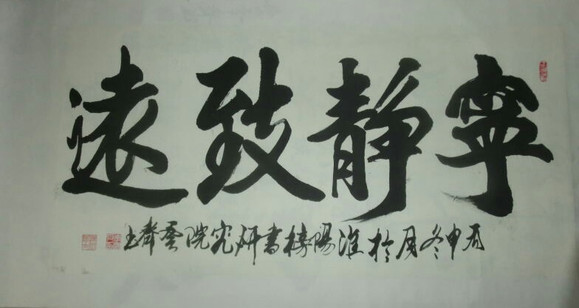 寧靜致遠
丙申冬月於淮陽榜書研究院雲聲書